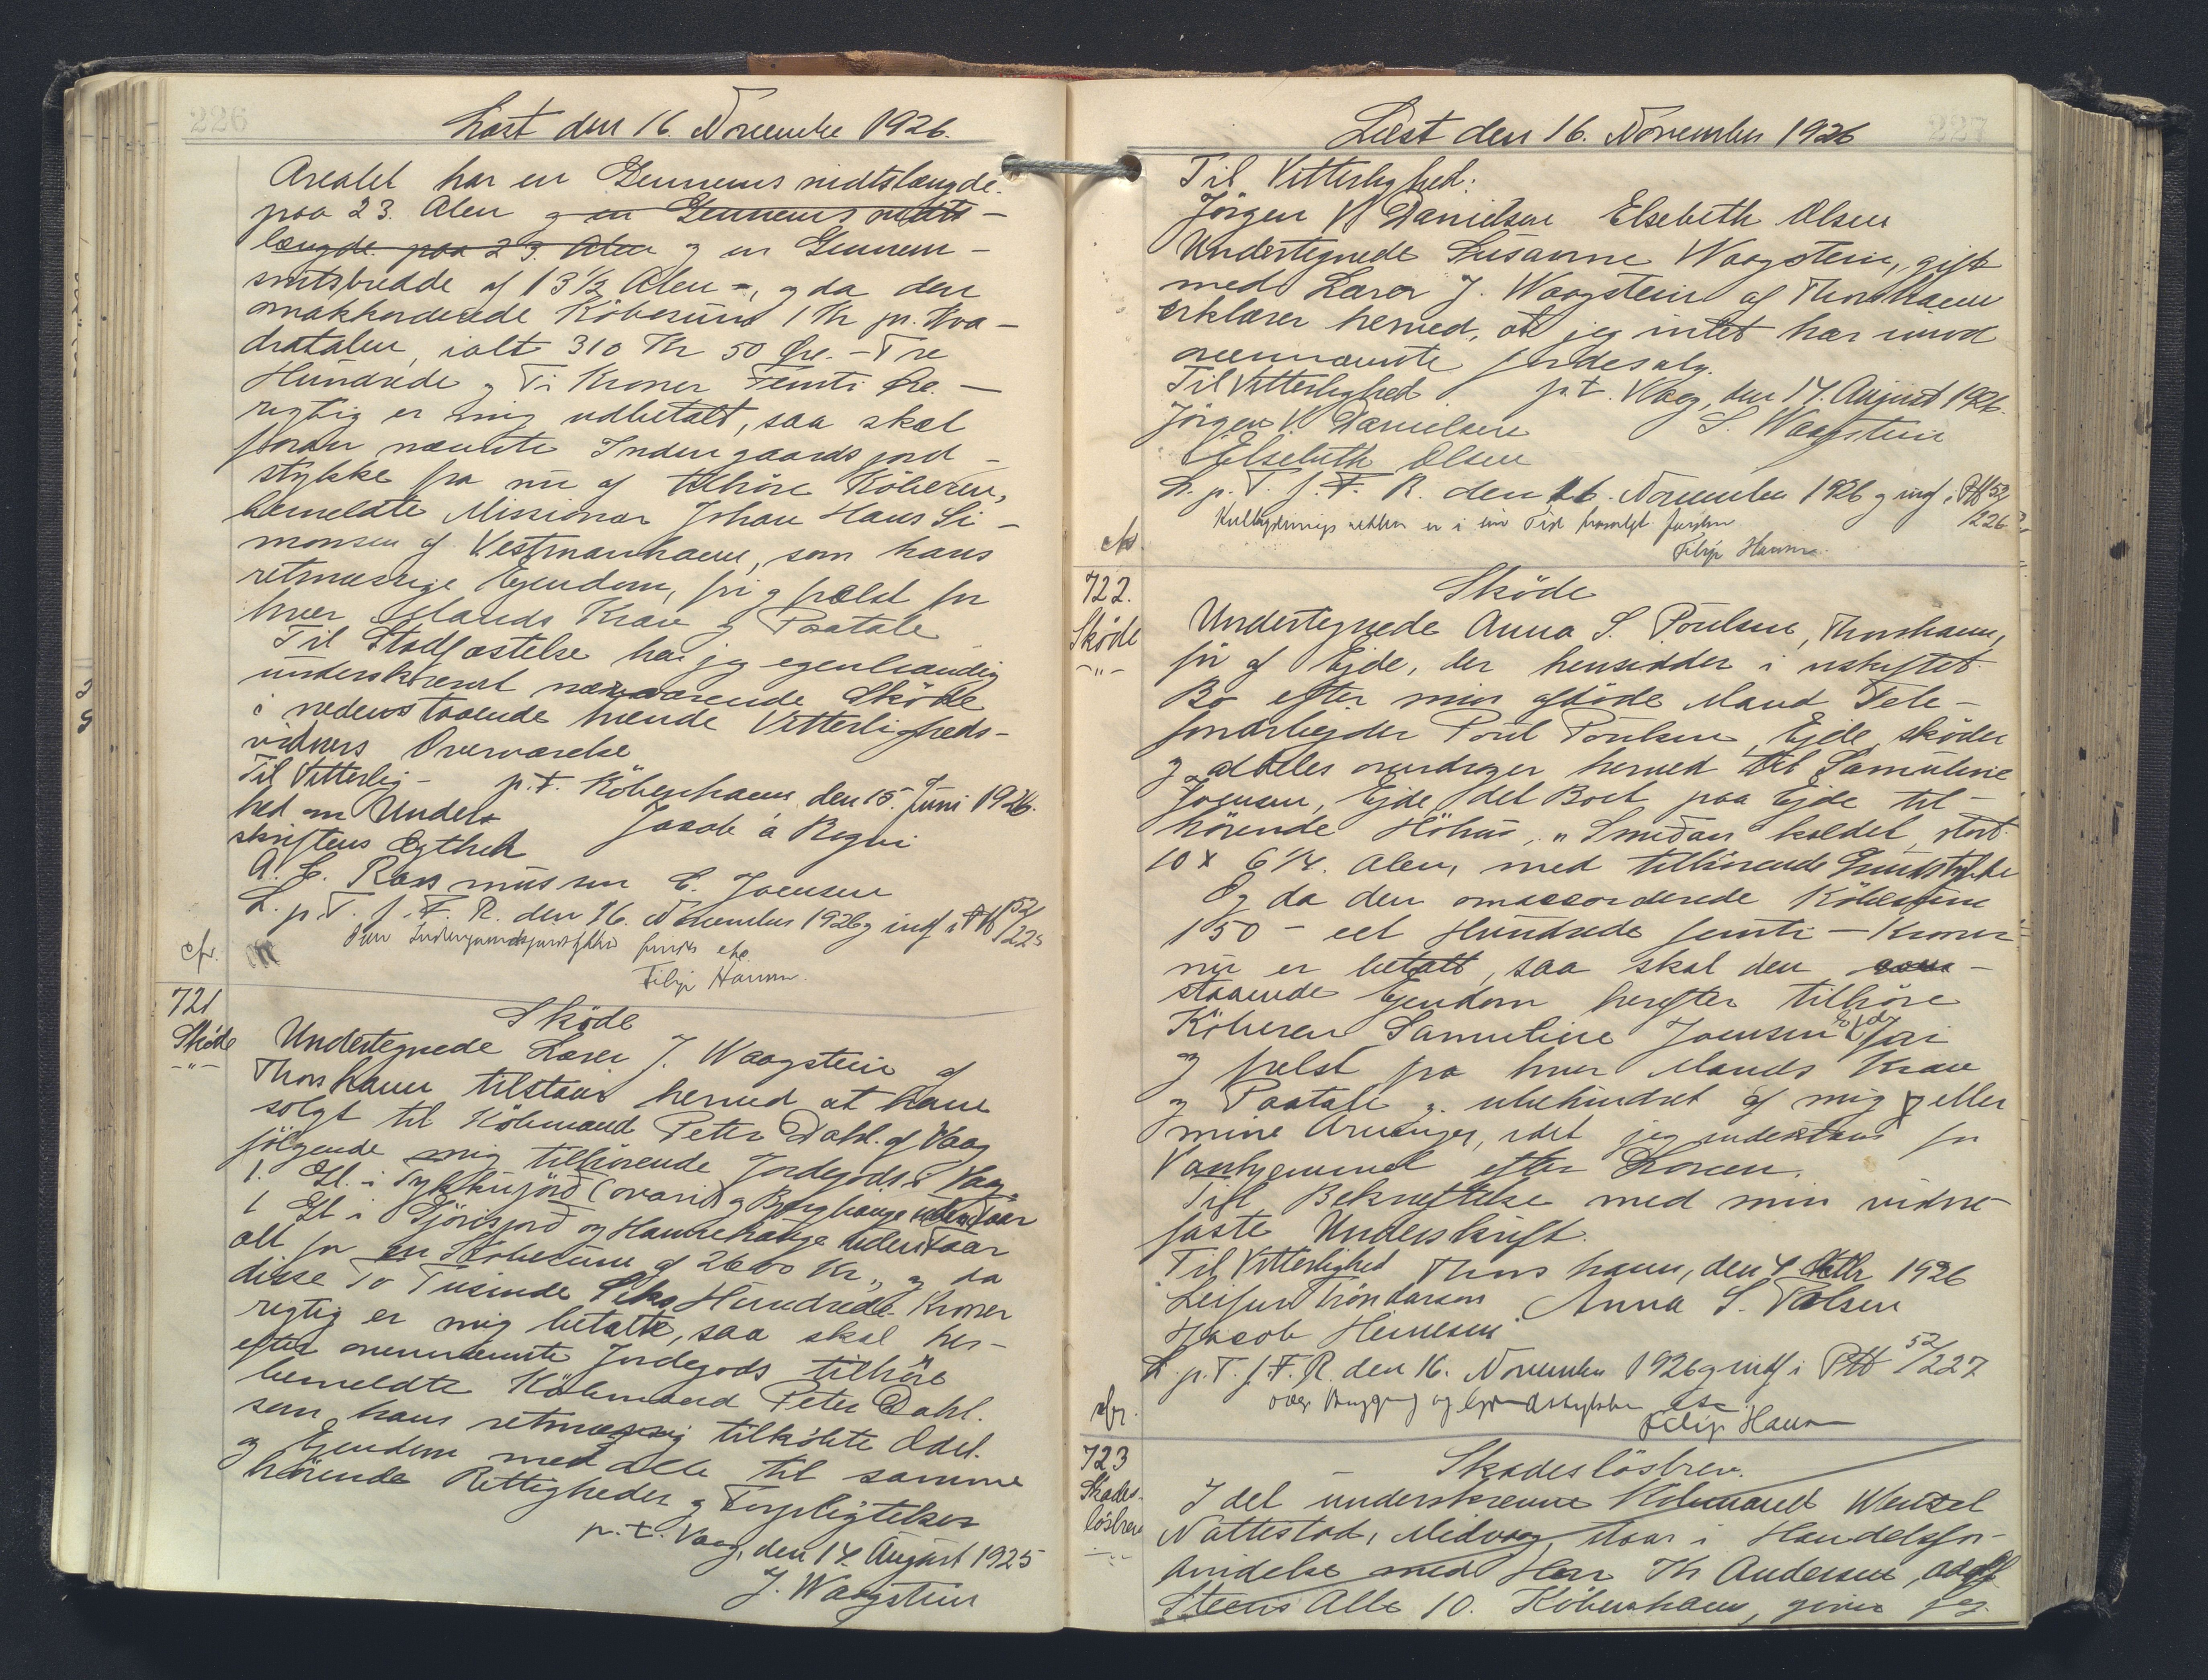 226
Læst den 16. November 1926.
Arealet har en Gennemsnidtslængde
paa 23. Alen og en Gennemsnidts-
længde paa 23. Alen og en Gennem-
snitsbredde af 13½ Alen -, og da den
omakkorderede Köbesum 1 Kr pr. Kva-
dratalen, ialt 310 Kr 50 Øre. - Tre
Hundrede og Ti Kroner Femti Øre. -
rigtig er mig udbetalt, saa skal
foran nævnte Indengaardsjord-
stykke fra nu af tilhöre Köberen,
bemeldte Missionær Johan Hans Si-
monsen af Vestmanhavn, som hans
retmæssige Ejendom, fri og frælst for
hver Mands Krav og Paatale
Til Stadfæstelse har jeg egenhændig
underskrevet nærværende Sköde
i nedenstaaende tvende Vitterligheds-
vidners Overværelse
Til Vitterlig- p.t. Köbenhavn, den 15. Juni 1926.
hed om Under- Jacob á Bogni
skriftens Ægthed
A. C. Rasmussen E. Joensen
L. p. T. f. F. R. den 16. November 1926 og indf i Ptb 52/225
cfr. Den Indengaardsjordstykke findes ehc.
Filip Hamm.
721 Sköde
Sköde Undertegnede Lærer J. Waagstein af
-"- Thorshavn tilstaar herved at have
solgt til Köbmand Peter Dahl. af Vaag
fölgende mig tilhörende Jordegods i Vaag.
1. Gl. i Tykkujörd (ovari) og Berghauge uden Faar
1 Gl i Gjörisjord og Hamrehauge uden Faar
alt for en Köbesum af 2600 Kr., og da
disse To Tusinde Seks Hundrede Kroner
rigtig er mig betalte, saa skal her-
efter ovennævnte Jordegods tilhöre
bemeldte Köbmand Peter Dahl.
som hans retmæssig tilköbte Odel.
og Ejendom med alle til samme
hörende Rettigheder og Forpligtelser
p.t. Vaag, den 14. August 1925
J. Waagstein
227
Læst den 16. November 1926
Til Vitterlighed:
Jörgen V Danielsen Elsebeth Olsen
Undertegnede Susanne Waagstein, gift
med Lærer J. Waagstein af Thorshavn
erklærer herved, at jeg intet har imod
ovennævnte jordesalg.
Til Vitterlighed p.t. Vaag, den 14. August 1926.
Jörgen V. Danielsen S. Waagstein
Elsebeth Olsen
L. p. T. f. F. R. den 16. November 1926 og indf. i Ptb 52/226
er i sin Tid
cfr. Filip Hamm.
722. Sköde
Sköde Undertegnede Anna S. Poulsen, Thorshavn,
-"- för af Ejde, der hensidder i uskiftet
Bo efter min afdöde Mand Tele-
fonarbejder Poul Poulsen, Ejde, sköder
og aldeles overdrager herved til Samuline
Joensen, Ejde det Boet paa Ejde til-
hörende Höhus, "Smidan" kaldet, stort
10 x 6¼. Alen, med tilhörende Grundstykke
Og da den omaccorderede Köbesum
150 - eet Hundrede femti - Kroner
nu er betalt, saa skal den oven-
staaende Ejendom herefter tilhöre
Köberen Samuline Joensen Ejde, fri
og frælst fra hver Mands Krav
og Paatale og ubehindret af mig eller
mine Arvinger, idet jeg indestaar for
Vanhjemmel efter Loven.
Til Bekræftelse med min vidne-
faste Underskrift.
Til Vitterlighed Thorshavn, den 4 Oktbr 1926
Leifur Tröndarson Anna S. Polsen
Jacob Heinesen
L. p. T. f. F. R. den 16. November 1926 og indf i Ptb 52/227
cfr. over Bygning og Grundstykke
Filip Hamm
723 Skadeslösbrev.
Skades- I det underskrevne Köbmand Wenzel
lösbrev Nattestad, Midvaag, staar i Handelsfor-
-"- bindelse med Herr Th Andersen, Adolf
Steens Alle 10. Köbenhavn, giver jeg